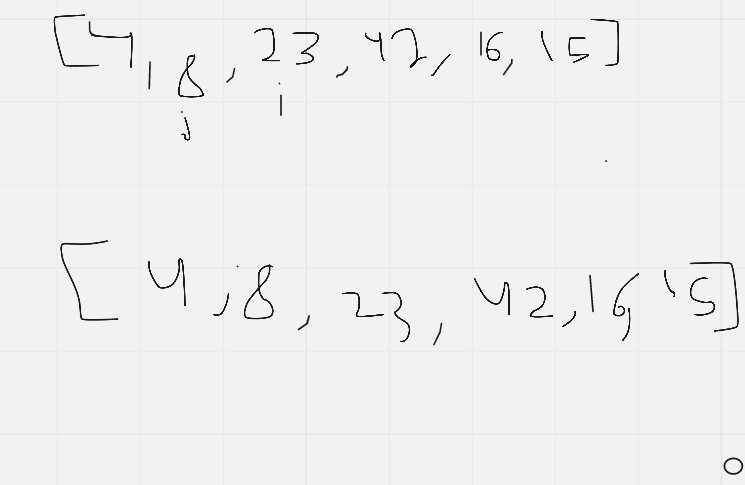 [4, 8, 23, 42, 16, 15]
j i
[4, 8, 23, 42, 16, 15]